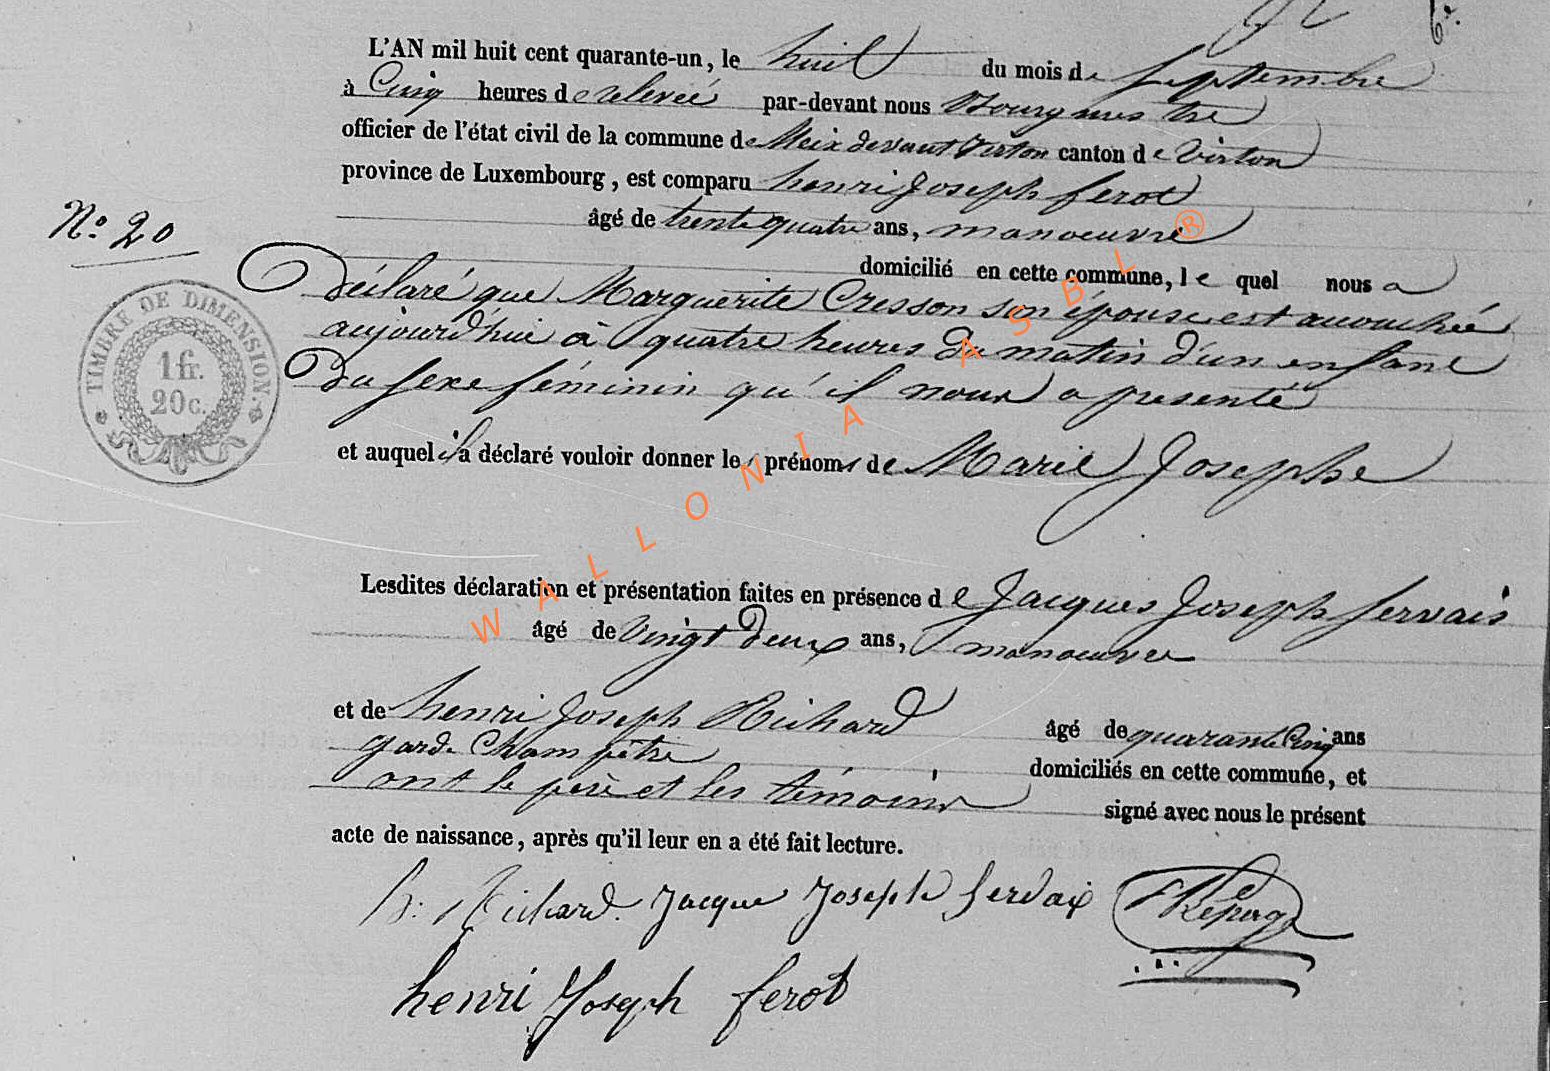 L'AN mil huit cent quarante-un, le huit du mois de Septembre
à Cinq heures de relevée par-devant nous Bourgmestre
officier de l'état civil de la commune de Meix devant Virton canton de Virton
province de Luxembourg, est comparu henri Joseph ferot
âgé de trente quatre ans, manoeuvre
N.º 20
domicilié en cette commune, le quel nous a
Déclaré que Marguerite Cresson son épouse est accouchée
aujourd'hui à quatre heures du matin d'un enfant
Du sexe féminin qu'il nous a presenté
TIMBRE DE DIMENSION.
1 fr.
20 c.
et auquel il a déclaré vouloir donner les prénoms de Marie Josephe
Lesdites déclaration et présentation faites en présence de Jacques Joseph Servais
âgé de Vingt Deux ans, manoeuvre
et de henri Joseph Richard âgé de quarante Cinq ans
garde Champêtre domiciliés en cette commune, et
ont le père et les témoins signé avec nous le présent
acte de naissance, après qu'il leur en a été fait lecture.
h: Richard. Jacque Joseph Servaix
henri Joseph ferot
WALLONIA ASBL ®